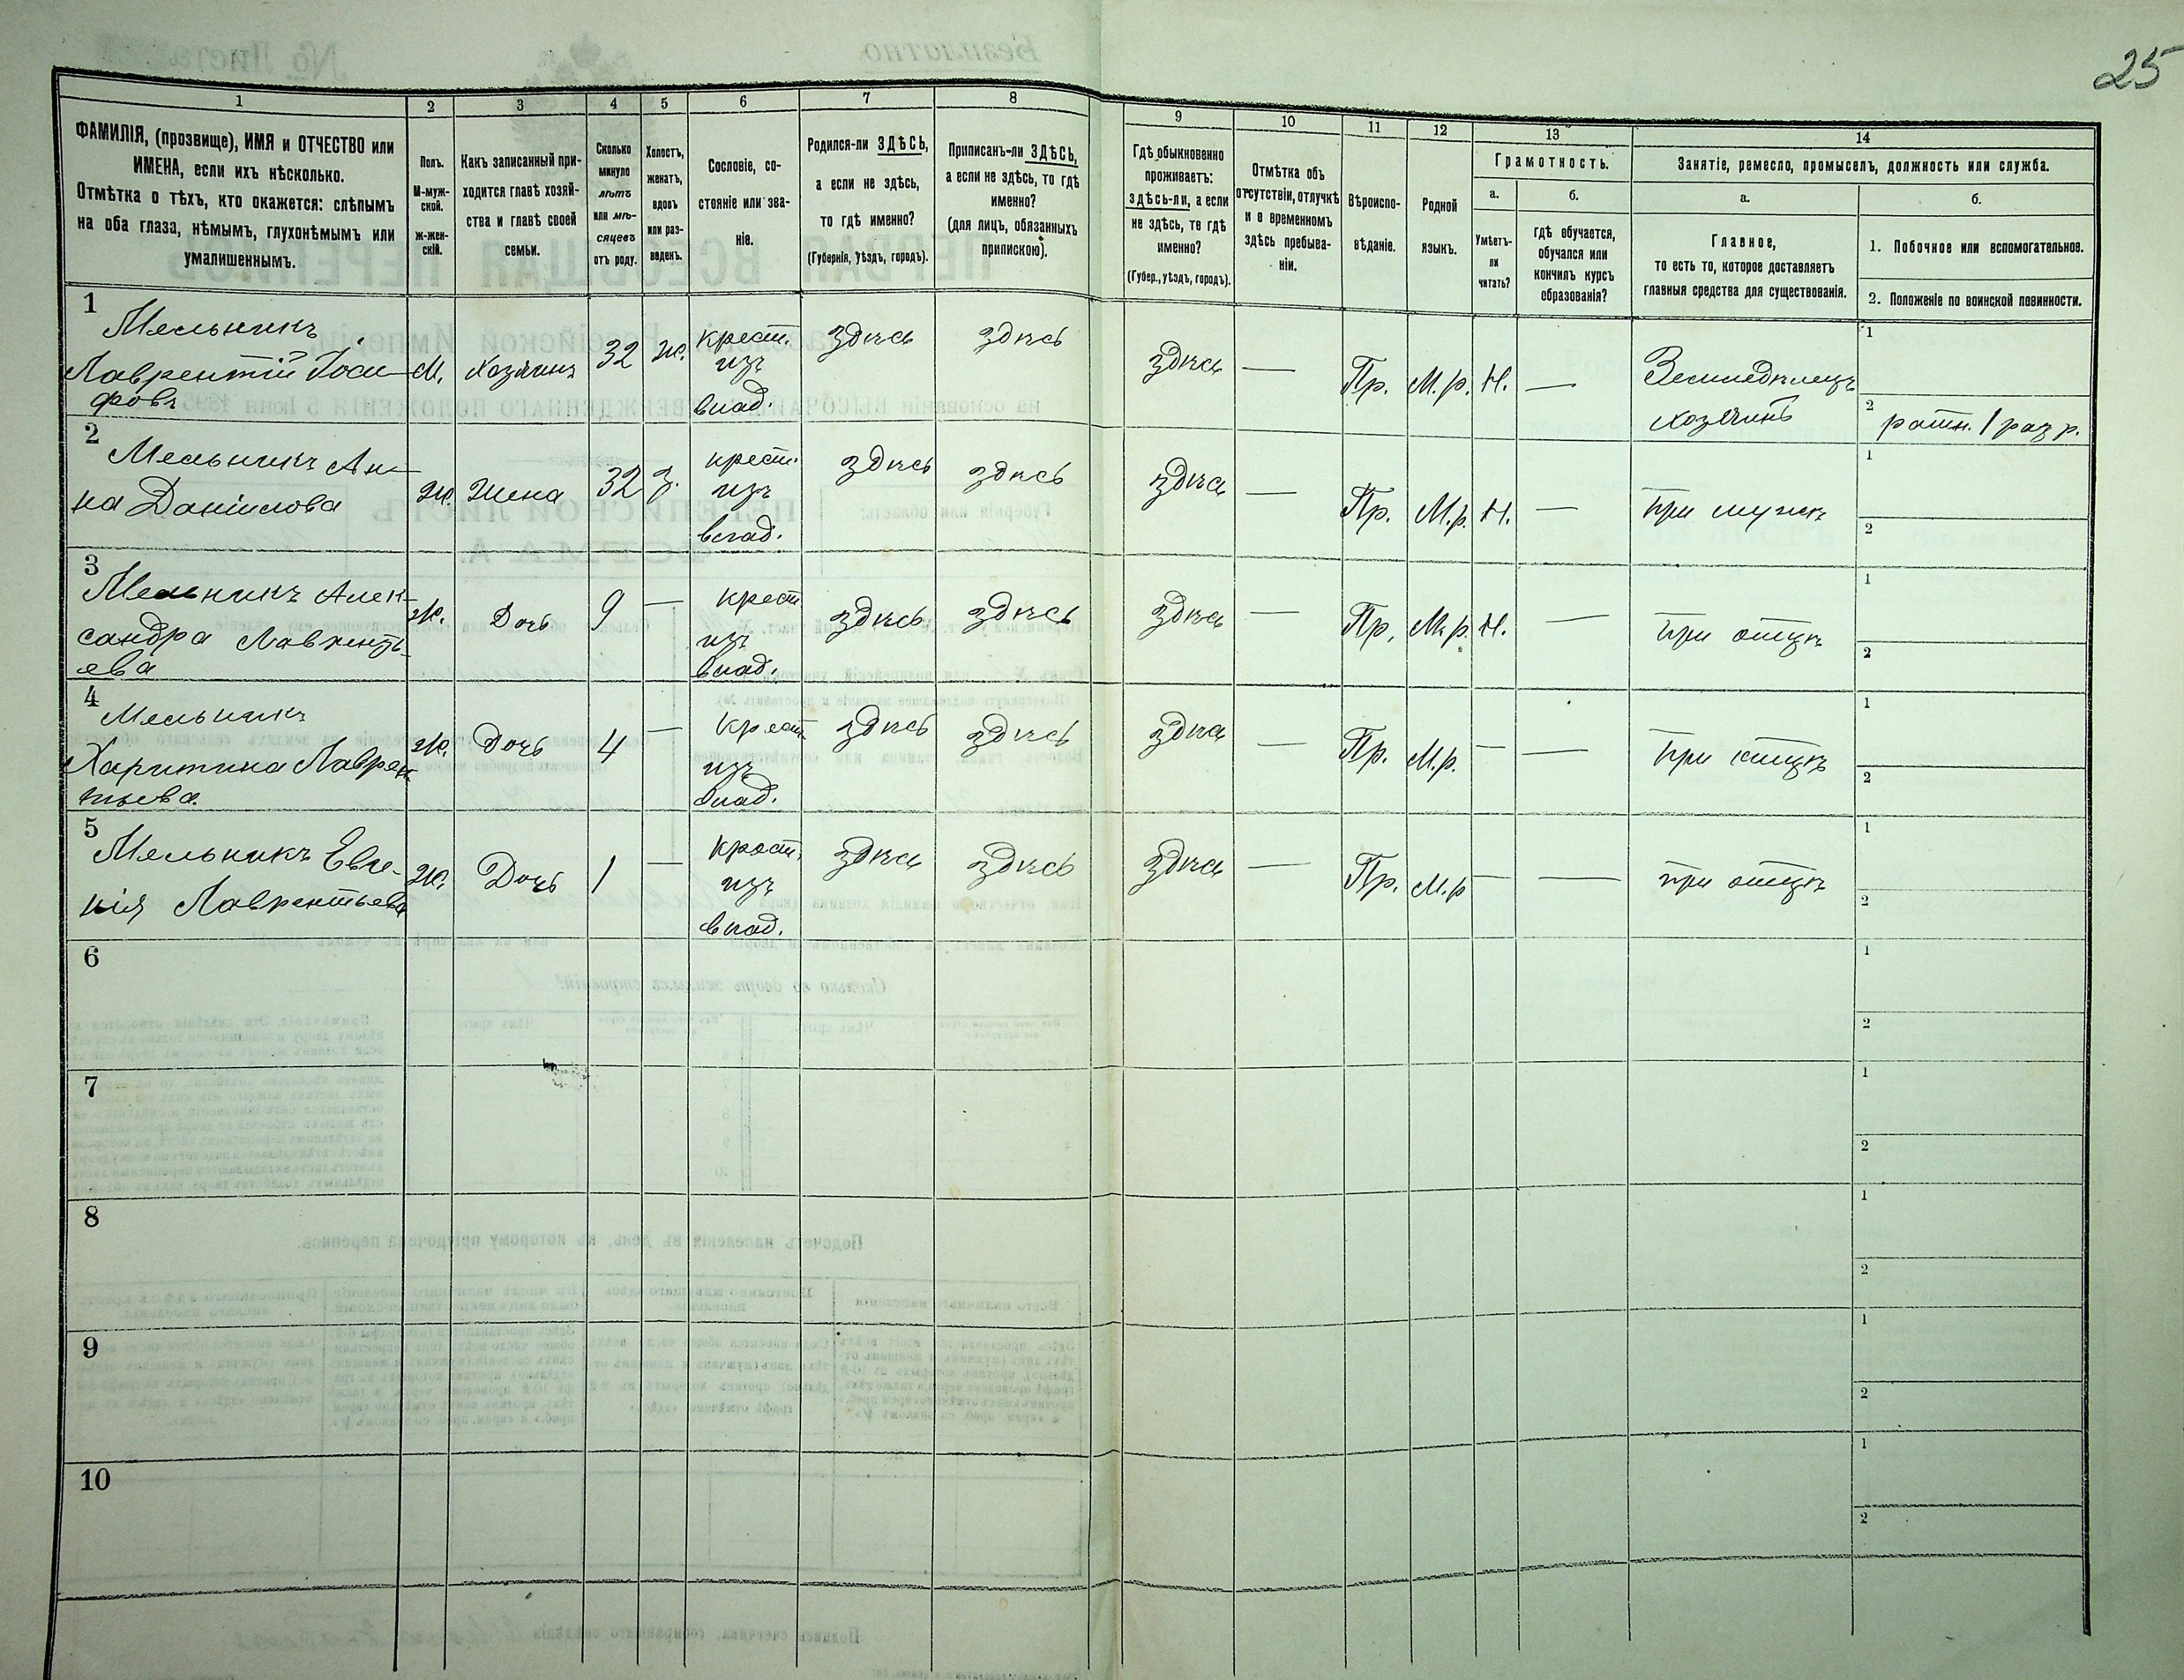 25
1 2 3 4 5 6 7 8 9 10 11 12 13 14
ФАМИЛІЯ, (прозвище), ИМЯ и ОТЧЕСТВО или
ИМЕНА, если ихъ нѣсколько.
Отмѣтка о тѣхъ, кто окажется: слѣпымъ
на оба глаза, нѣмымъ, глухонѣмымъ или
умалишеннымъ.
Полъ.
М-муж-
ской.
ж-жен-
скій.
Какъ записанный при-
ходится главѣ хозяй-
ства и главѣ своей
семьи.
Сколько
минуло
лѣтъ
или мѣ-
сяцевъ
отъ роду.
Холостъ,
женатъ,
вдовъ
или раз-
веденъ.
Сословіе, со-
стояніе или зва-
ніе.
Родился-ли ЗДѢСЬ,
а если не здѣсь,
то гдѣ именно?
(Губернія, уѣздъ, городъ).
Приписанъ-ли ЗДѢСЬ,
а если не здѣсь, то гдѣ
именно?
(для лицъ, обязанныхъ
припискою).
Гдѣ обыкновенно
проживаетъ:
здѣсь-ли, а если
не здѣсь, то гдѣ
именно?
(Губер., уѣздъ, городъ).
Отмѣтка объ
отсутствіи, отлучкѣ
и о временномъ
здѣсь пребыва-
ніи.
Вѣроиспо-
вѣданіе.
Родной
языкъ.
Грамотность.
а.
Умѣетъ-
ли
читать?
б.
гдѣ обучается,
обучался или
кончилъ курсъ
образованія?
Занятіе, ремесло, промыселъ, должность или служба.
а.
Главное,
то есть то, которое доставляетъ
главныя средства для существованія.
б.
1. Побочное или вспомогательное.
2. Положеніе по воинской повинности.
1
Мельникъ
Лаврентій Іоси-
фовъ
М. Хозяинъ 32 ж.
крест.
изъ
влад.
здѣсь здѣсь здѣсь — Пр. М.р. Н. —
Земледѣлецъ
хозяинъ
1
2 ратн. 1 разр.
2
Мельникъ Ан-
на Даніилова
Ж. Жена 32 з.
крест.
изъ
влад.
здѣсь здѣсь здѣсь — Пр. М.р. Н. — При мужѣ
1
2
3
Мельникъ Алек-
сандра Лаврентъ-
ева
Ж. Дочь 9 —
крест
изъ
влад.
здѣсь здѣсь здѣсь — Пр. М.р. Н. — При отцѣ
1
2
4
Мельникъ
Харитина Лаврен
тьева.
Ж. Дочь 4 —
крест
изъ
влад.
здѣсь здѣсь здѣсь — Пр. М.р. — — При отцѣ
1
2
5
Мельникъ Евге-
нія Лаврентьева
Ж. Дочь 1 —
крест.
изъ
влад.
здѣсь здѣсь здѣсь — Пр. М.р — — при отцѣ
1
2
6
1
2
7
1
2
8
1
2
9
1
2
10
1
2